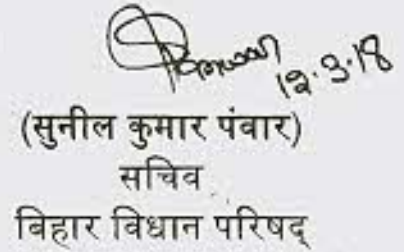 12.3.18
(सुनील कुमार पंवार)
सचिव
बिहार विधान परिषद्